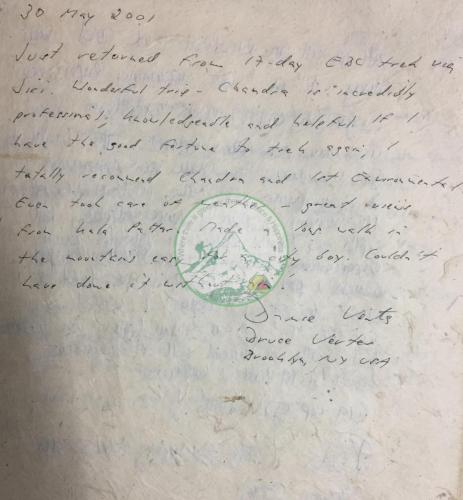 30 May 2001
Just returned from 17-day EBC trek via
Jiri. Wonderful trip - Chandra is incredibly
professional, knowledgeable and helpful. If I
have the good fortune to trek again, I
totally recommend Chandra and 1st Environmental
Even took care of weather - great views
from Kala Pattar. Made a long walk in
the mountains easy for a city boy. Couldn't
have done it without
Bruce Venter
Brooklyn, NY USA